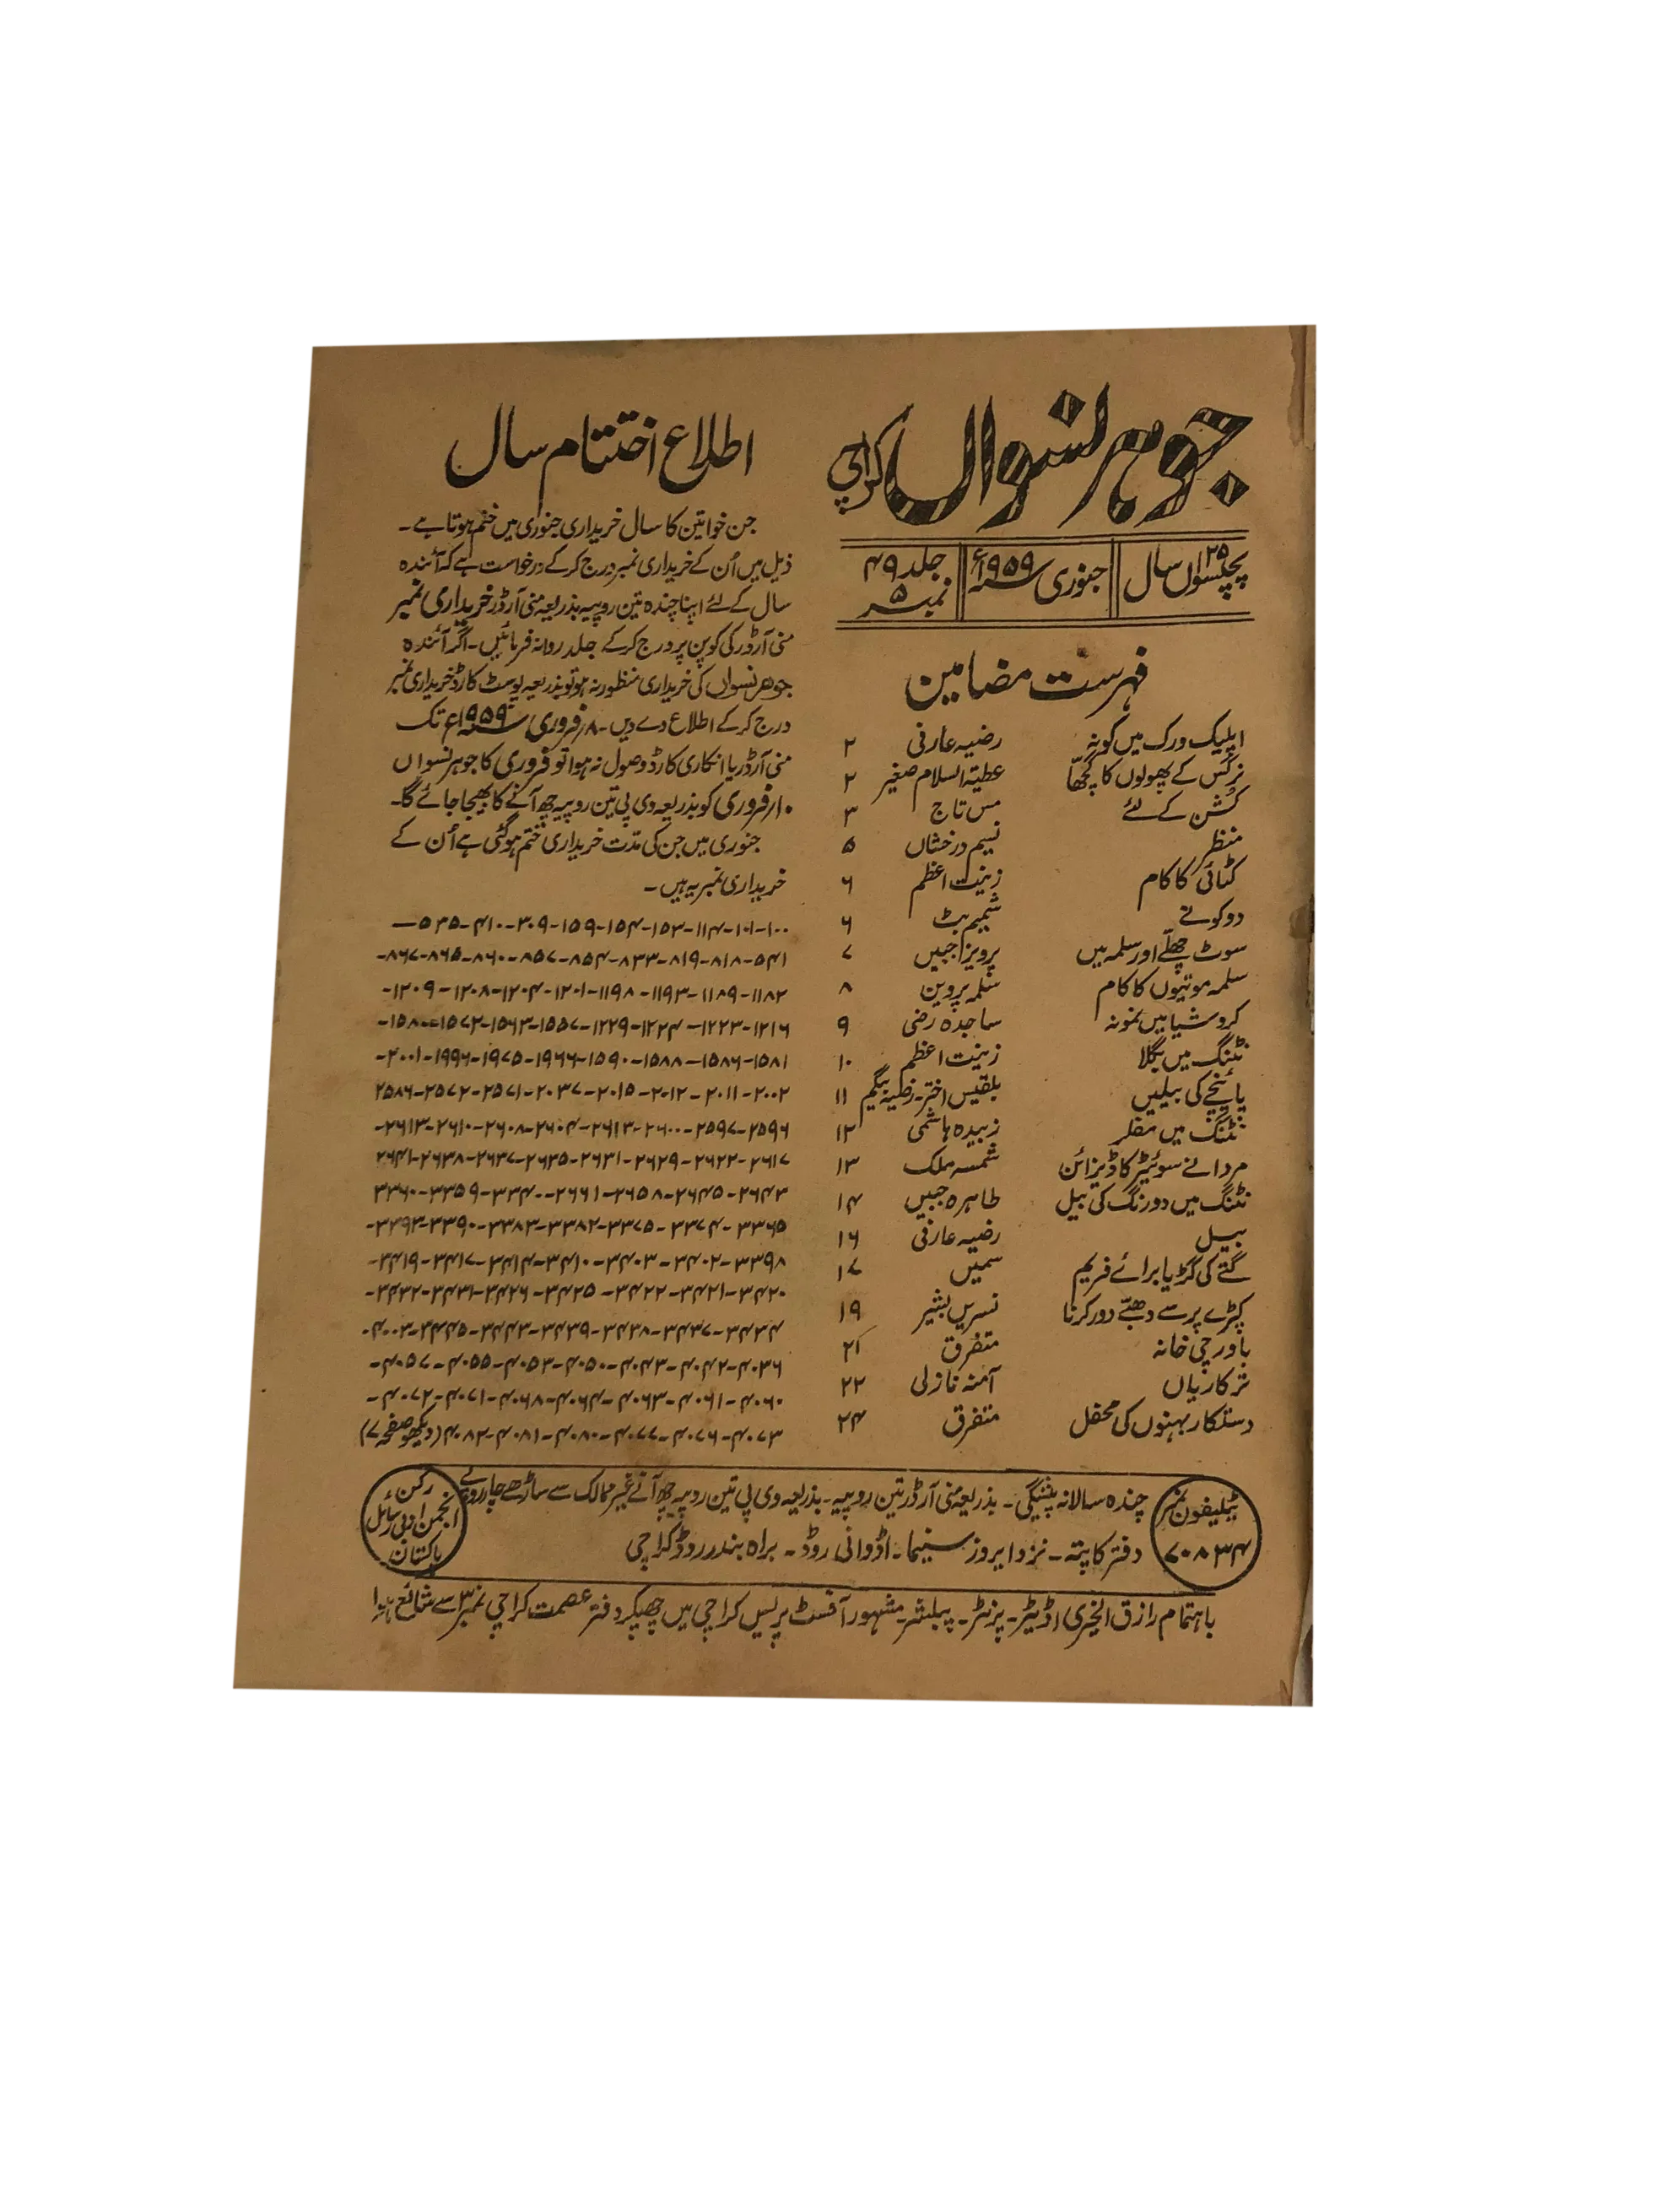 جوہر نسواں کراچی
پچیسواں ۲۵ سال
جنوری ۱۹۵۹ء
جلد ۴۹
نمبر ۵
فہرست مضامین
اپلیک ورک میں کونہ رضیہ عارفی ۲
نرگس کے پھولوں کا گچھا عطیۃ السلام صغیر ۲
کشن کے لئے مس تاج ۳
منظر نسیم درخشاں ۵
کٹائی کا کام زینت اعظم ۶
دو کونے شمیم بٹ ۶
سوٹ چھلّے اور سلمہ میں پرویز اجبیں ۷
سلمہ موتیوں کا کام سلمہ پروین ۸
کروشیا میں نمونہ ساجدہ رضی ۹
نٹنگ میں بگلا زینت اعظم ۱۰
پائنچے کی بیلیں بلقیس اختر۔ رضیہ بیگم ۱۱
نٹنگ میں مفلر زبیدہ ہاشمی ۱۲
مردانے سوئیٹر کا ڈیزائن شمسہ ملک ۱۳
نٹنگ میں دو رنگ کی بیل طاہرہ جبیں ۱۴
بیل رضیہ عارفی ۱۶
گتے کی گڑیا برائے فریم سمیں ۱۷
کپڑے پر سے دھبّے دور کرنا نسرین بشیر ۱۹
باورچی خانہ متفرق ۲۱
ترکاریاں آمنہ نازلی ۲۲
دستکار بہنوں کی محفل متفرق ۲۴
اطلاع اختتام سال
جن خواتین کا سال خریداری جنوری میں ختم ہوتا ہے۔
ذیل میں اُن کے خریداری نمبر درج کرکے درخواست ہے کہ آئندہ
سال کے لئے اپنا چندہ تین روپیہ بذریعہ منی آرڈر خریداری نمبر
منی آرڈر کی کوپن پر درج کرکے جلد روانہ فرمائیں۔ اگر آئندہ
جوہر نسواں کی خریداری منظور نہ ہو تو بذریعہ پوسٹ کارڈ خریداری نمبر
درج کرکے اطلاع دے دیں۔ ۸ فروری ۱۹۵۹ء تک
منی آرڈر یا انکاری کارڈ وصول نہ ہوا تو فروری کا جوہر نسواں
۱۰ فروری کو بذریعہ وی پی تین روپیہ چھ آنے کا بھیجا جائے گا۔
جنوری میں جن کی مدت خریداری ختم ہوگئی ہے اُن کے
خریداری نمبر یہ ہیں۔
۱۰۰-۱۰۱-۱۱۴-۱۵۳-۱۵۴-۱۵۹-۳۰۹-۴۱۰-۵۳۵-
۵۴۱-۸۱۸-۸۱۹-۸۳۳-۸۵۴-۸۵۷-۸۶۰-۸۶۵-۸۶۷-
۱۱۸۲-۱۱۸۹-۱۱۹۳-۱۱۹۸-۱۲۰۱-۱۲۰۴-۱۲۰۸-۱۲۰۹-
۱۲۱۶-۱۲۲۳-۱۲۲۴-۱۲۲۹-۱۵۵۷-۱۵۶۳-۱۵۷۲-۱۵۸۰-
۱۵۸۱-۱۵۸۶-۱۵۸۸-۱۵۹۰-۱۹۶۶-۱۹۷۵-۱۹۹۶-۲۰۰۱-
۲۰۰۲-۲۰۱۱-۲۰۱۲-۲۰۱۵-۲۰۳۷-۲۵۷۱-۲۵۷۲-۲۵۸۶
۲۵۹۶-۲۵۹۷-۲۶۰۰-۲۶۱۳-۲۶۰۴-۲۶۰۸-۲۶۱۰-۲۶۱۳-
۲۶۱۷-۲۶۲۲-۲۶۲۹-۲۶۳۱-۲۶۳۵-۲۶۳۷-۲۶۳۸-۲۶۴۱
۲۶۴۳-۲۶۴۵-۲۶۵۸-۲۶۶۱-۳۳۴۰-۳۳۵۹-۳۳۶۰
۳۳۶۵-۳۳۷۴-۳۳۷۵-۳۳۸۲-۳۳۸۳-۳۳۹۰-۳۳۹۳-
۳۳۹۸-۳۴۰۲-۳۴۰۳-۳۴۱۰-۳۴۱۴-۳۴۱۷-۳۴۱۹-
۳۴۲۰-۳۴۲۱-۳۴۲۲-۳۴۲۵-۳۴۲۶-۳۴۳۱-۳۴۳۲-
۳۴۳۴-۳۴۳۷-۳۴۳۸-۳۴۳۹-۳۴۴۳-۳۴۴۵-۴۰۰۲-
۴۰۳۶-۴۰۴۲-۴۰۴۳-۴۰۵۰-۴۰۵۳-۴۰۵۵-۴۰۵۷-
۴۰۶۰-۴۰۶۱-۴۰۶۳-۴۰۶۴-۴۰۶۸-۴۰۷۱-۴۰۷۲-
۴۰۷۳-۴۰۷۶-۴۰۷۷-۴۰۸۰-۴۰۸۱-۴۰۸۲ (دیکھو صفحہ ۷)
ٹیلیفون نمبر
۷۰۸۳۴
چندہ سالانہ پیشگی۔ بذریعہ منی آرڈر تین روپیہ۔ بذریعہ وی پی تین روپیہ چھ آنے غیر ممالک سے ساڑھے چار روپے
دفتر کا پتہ۔ نزد ایروز سینما۔ اڈوانی روڈ۔ براہ بندر روڈ کراچی
رکن
انجمن ادبی رسائل
پاکستان
باہتمام رازق الخیری اڈیٹر۔ پرنٹر۔ پبلشر۔ مشہور آفسٹ پریس کراچی میں چھپکر دفتر عصمت کراچی نمبر ۳ سے شائع ہوا